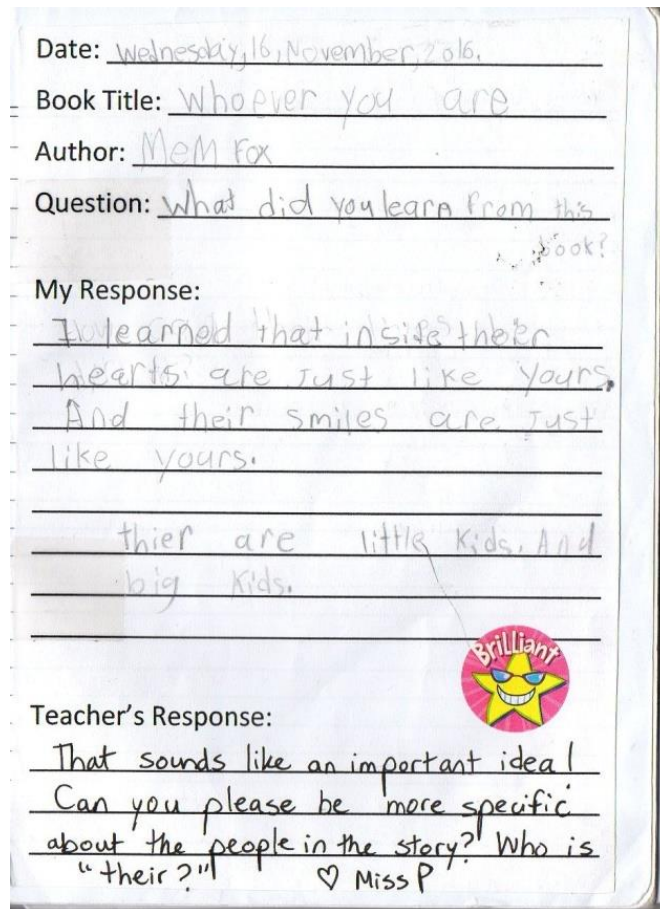 Date: Wednesday, 16, November, 2016.
Book Title: Whoever you are
Author: Mem Fox
Question: What did you learn from this
book?
My Response:
I learned that inside their
hearts are just like yours.
And their smiles are Just
like yours.
thier are little kids. And
big kids.
Brilliant
Teacher's Response:
That sounds like an important idea!
Can you please be more specific
about the people in the story? Who is
"their?"! ♡ Miss P